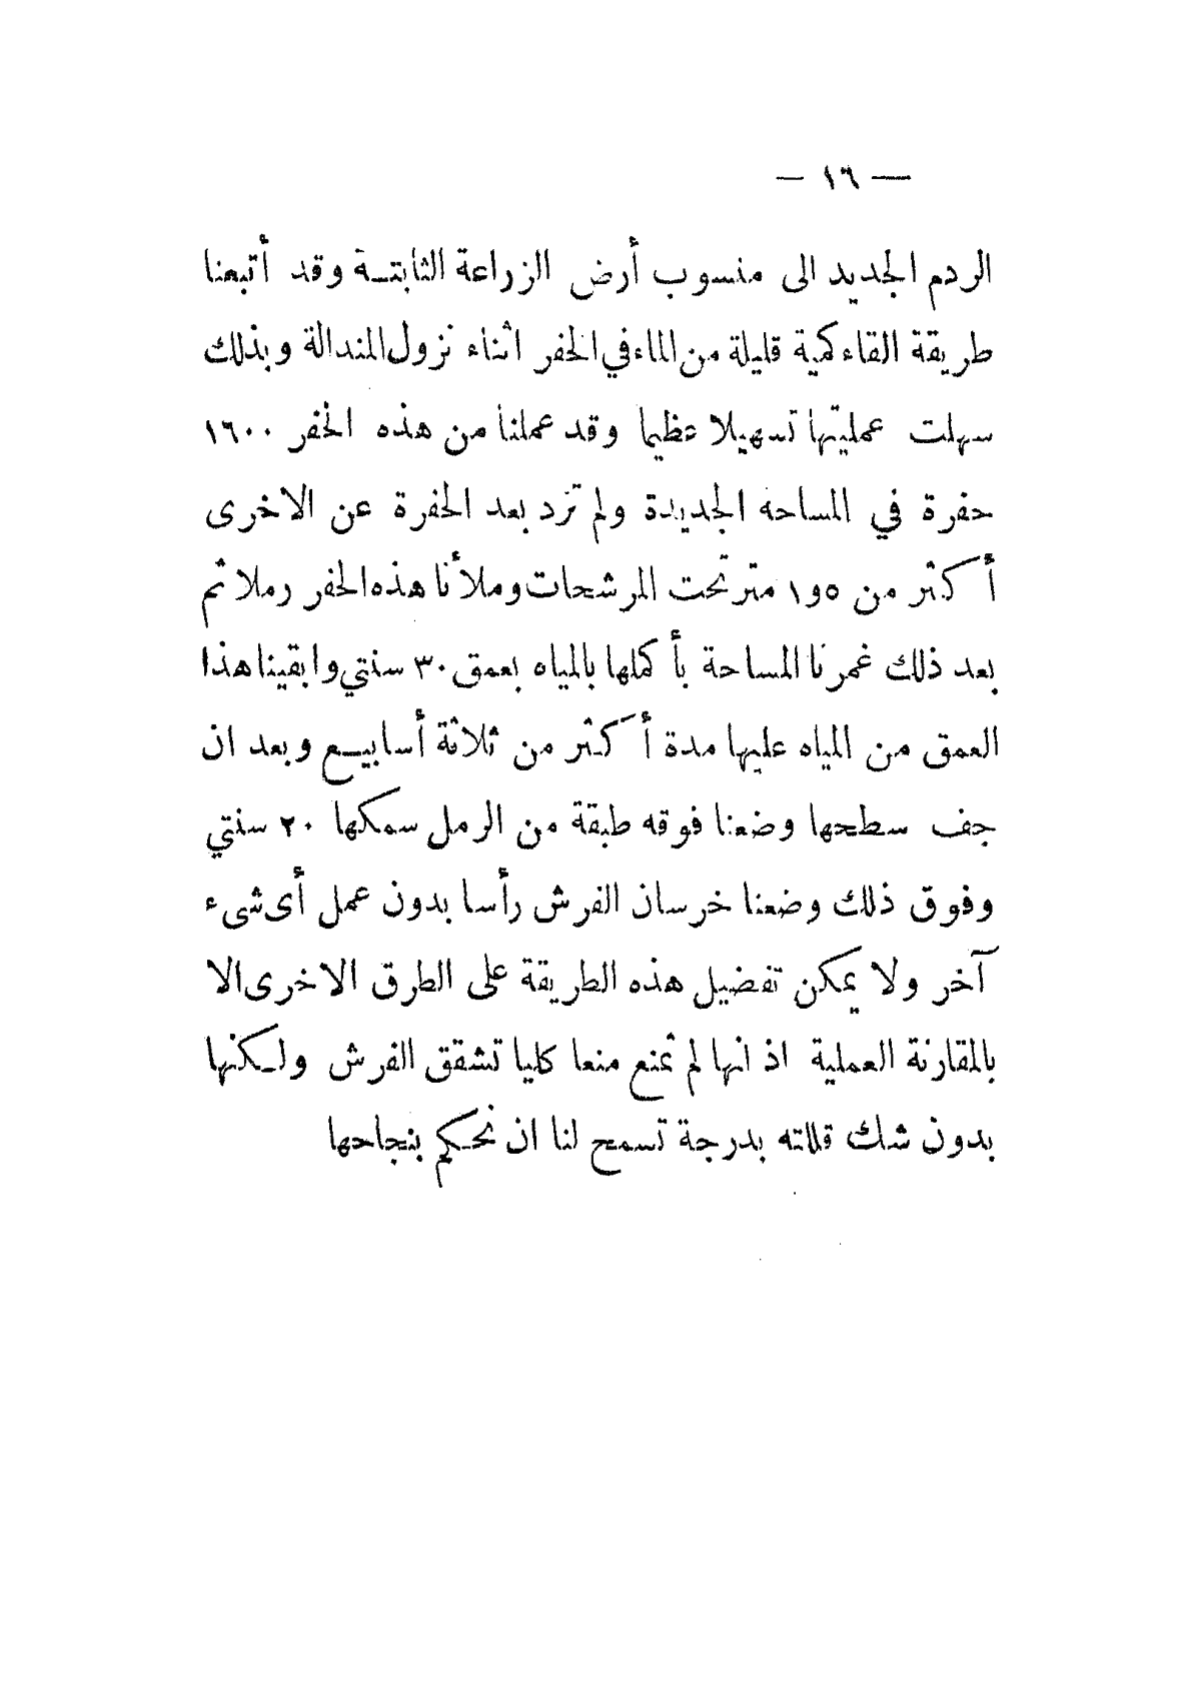 — ١٦ —
الردم الجديد الى منسوب أرض الزراعة الثابتة وقد أتبعنا
طريقة القاء كمية قليلة من الماء في الحفر اثناء نزول المندالة وبذلك
سهلت عمليتها تسهيلا عظيما وقد عملنا من هذه الحفر ١٦٠٠
حفرة في المساحة الجديدة ولم تزد بعد الحفرة عن الاخرى
أكثر من ٥و١ متر تحت المرشحات وملأنا هذه الحفر رملا ثم
بعد ذلك غمرنا المساحة بأكملها بالمياه بعمق ٣٠ سنتي وابقينا هذا
العمق من المياه عليها مدة أكثر من ثلاثة أسابيع وبعد ان
جف سطحها وضعنا فوقه طبقة من الرمل سمكها ٢٠ سنتي
وفوق ذلك وضعنا خرسان الفرش رأسا بدون عمل أى شىء
آخر ولا يمكن تفضيل هذه الطريقة على الطرق الاخرى الا
بالمقارنة العملية اذ انها لم تمنع منعا كليا تشقق الفرش ولكنها
بدون شك قللته بدرجة تسمح لنا ان نحكم بنجاحها